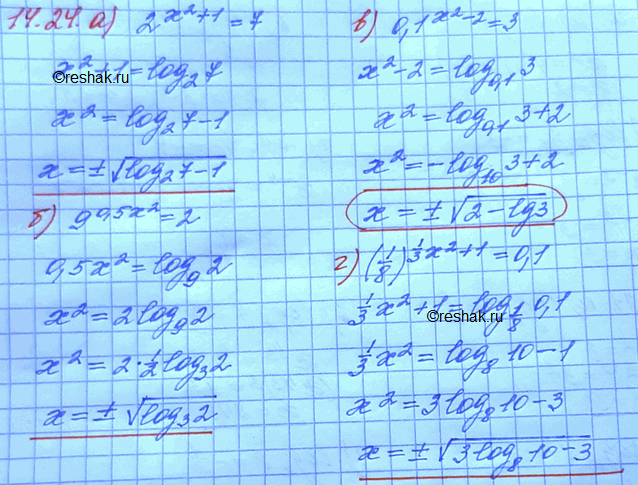 14.24. а) 2^{x²+1} = 7
x²+1 = log₂7
x² = log₂7 - 1
x = ± √(log₂7 - 1)
б) 9^{0,5x²} = 2
0,5x² = log₉2
x² = 2log₉2
x² = 2·½log₃2
x = ± √(log₃2)
в) 0,1^{x²-2} = 3
x² - 2 = log_{0,1} 3
x² = log_{0,1} 3 + 2
x² = -log₁₀ 3 + 2
x = ± √(2 - lg3)
г) (1/8)^{⅓x²+1} = 0,1
⅓x² + 1 = log_{1/8} 0,1
⅓x² = log₈ 10 - 1
x² = 3log₈ 10 - 3
x = ± √(3log₈ 10 - 3)
©reshak.ru
©reshak.ru